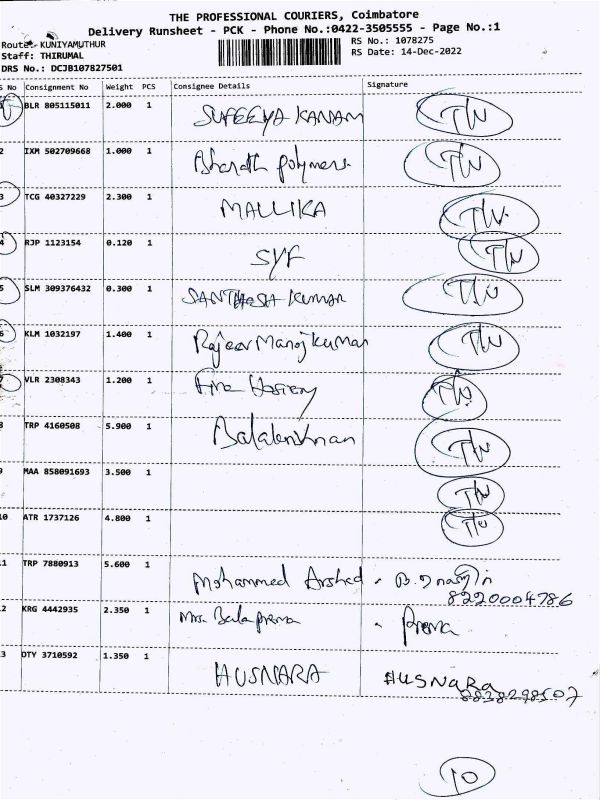 THE PROFESSIONAL COURIERS, Coimbatore
Delivery Runsheet - PCK - Phone No.:0422-3505555 - Page No.:1
Route:- KUNIYAMUTHUR
RS No.: 1078275
Staff: THIRUMAL
RS Date: 14-Dec-2022
DRS No.: DCJB107827501
S No Consignment No Weight PCS Consignee Details Signature
BLR 805115011 2.000 1 SUFEEYA KANAM TW
2 IXM 502709668 1.000 1 Bharath polymers TW
3 TCG 40327229 2.300 1 MALLIKA TW
4 RJP 1123154 0.120 1 SYF TW
5 SLM 309376432 0.300 1 SANTHOSH KUMAR TW
6 KLM 1032197 1.400 1 Rajeev Manoj Kumar TW
VLR 2308343 1.200 1 Fine Hosiery TW
8 TRP 4160508 5.900 1 Balakrishnan TW
9 MAA 858091693 3.500 1 TW
10 ATR 1737126 4.800 1 TW
11 TRP 7880913 5.600 1 Mohammed Arshed
8220004786
12 KRG 4442935 2.350 1 Mrs. Bala prema - Prema
13 DTY 3710592 1.350 1 HUSNARA HUSNaRa
8838298507
10